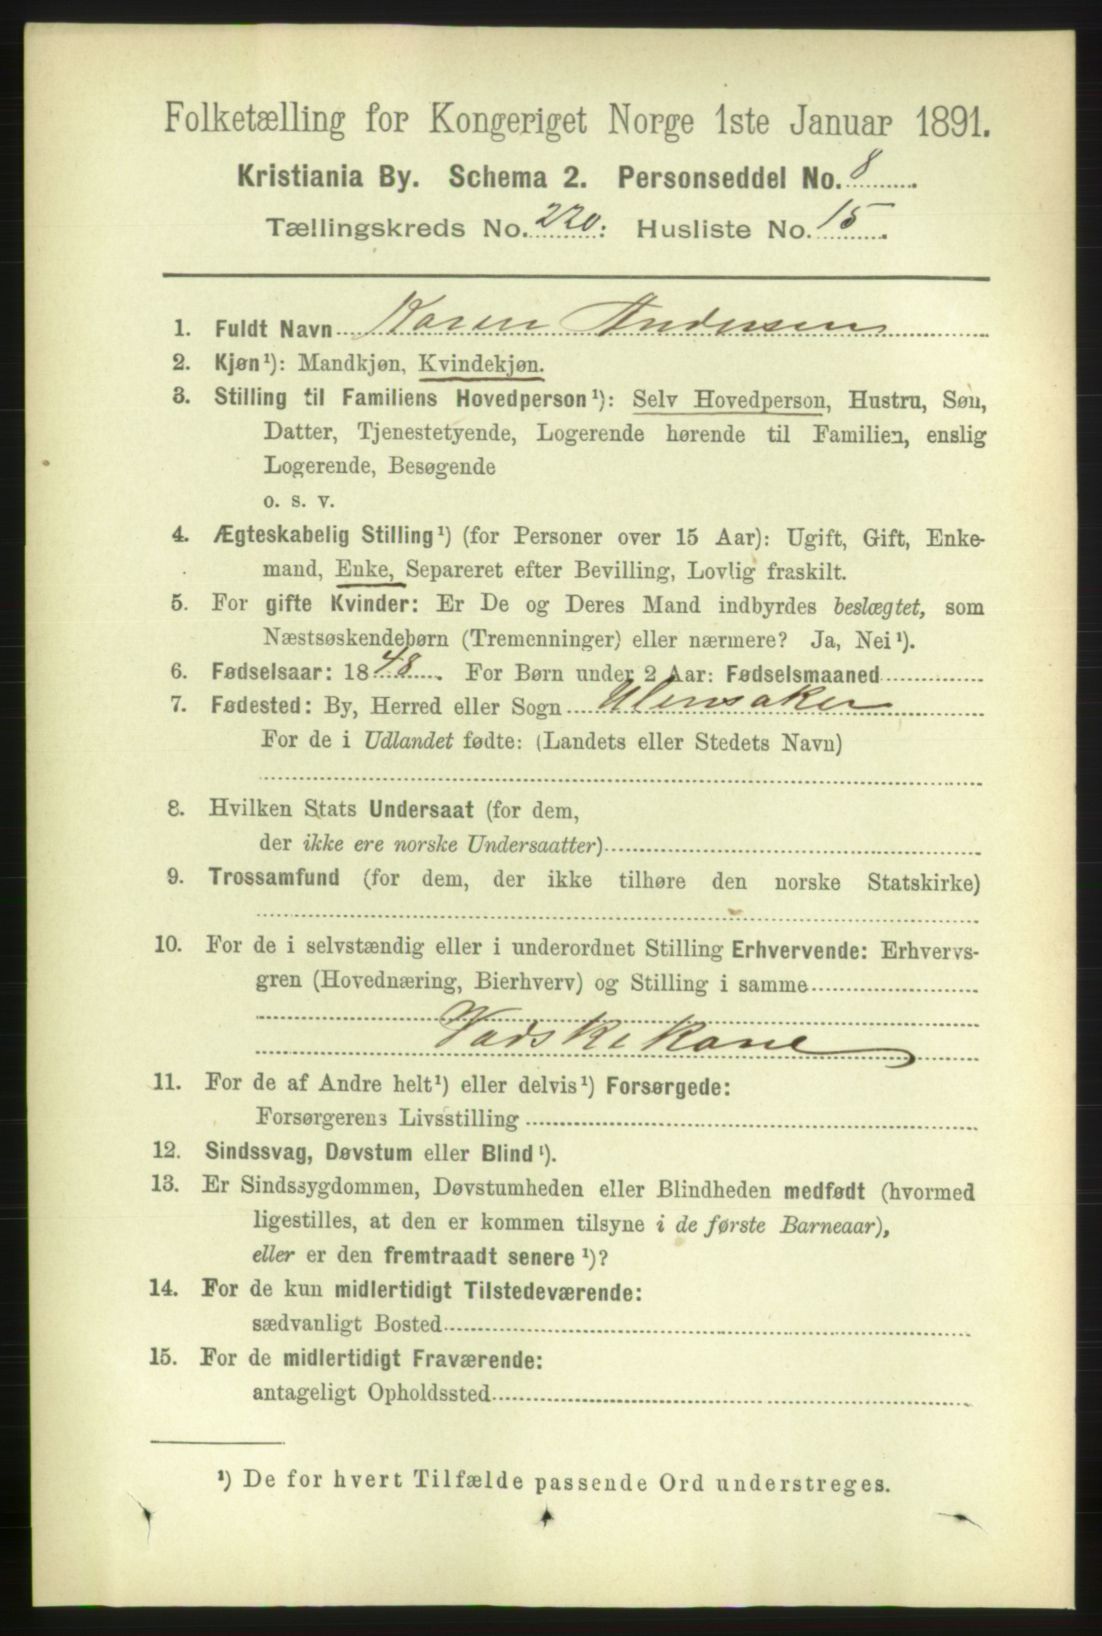 Folketælling for Kongeriget Norge 1ste Januar 1891.
Kristiania By. Schema 2. Personseddel No. 8.
Tællingskreds No. 220: Husliste No. 15.
1. Fuldt Navn Karen Andersen
2. Kjøn¹): Mandkjøn, Kvindekjøn.
3. Stilling til Familiens Hovedperson¹): Selv Hovedperson, Hustru, Søn,
Datter, Tjenestetyende, Logerende hørende til Familien, enslig
Logerende, Besøgende
o. s. v.
4. Ægteskabelig Stilling¹) (for Personer over 15 Aar): Ugift, Gift, Enke-
mand, Enke, Separeret efter Bevilling, Lovlig fraskilt.
5. For gifte Kvinder: Er De og Deres Mand indbyrdes beslægtet, som
Næstsøskendebørn (Tremenninger) eller nærmere? Ja, Nei¹).
6. Fødselsaar: 1848. For Børn under 2 Aar: Fødselsmaaned
7. Fødested: By, Herred eller Sogn Ulensaker
For de i Udlandet fødte: (Landets eller Stedets Navn)
8. Hvilken Stats Undersaat (for dem,
der ikke ere norske Undersaatter)
9. Trossamfund (for dem, der ikke tilhøre den norske Statskirke)
10. For de i selvstændig eller i underordnet Stilling Erhvervende: Erhvervs-
gren (Hovednæring, Bierhverv) og Stilling i samme
Vadskekone
11. For de af Andre helt¹) eller delvis¹) Forsørgede:
Forsørgerens Livsstilling
12. Sindssvag, Døvstum eller Blind¹).
13. Er Sindssygdommen, Døvstumheden eller Blindheden medfødt (hvormed
ligestilles, at den er kommen tilsyne i de første Barneaar),
eller er den fremtraadt senere¹)?
14. For de kun midlertidigt Tilstedeværende:
sædvanligt Bosted
15. For de midlertidigt Fraværende:
antageligt Opholdssted
¹) De for hvert Tilfælde passende Ord understreges.